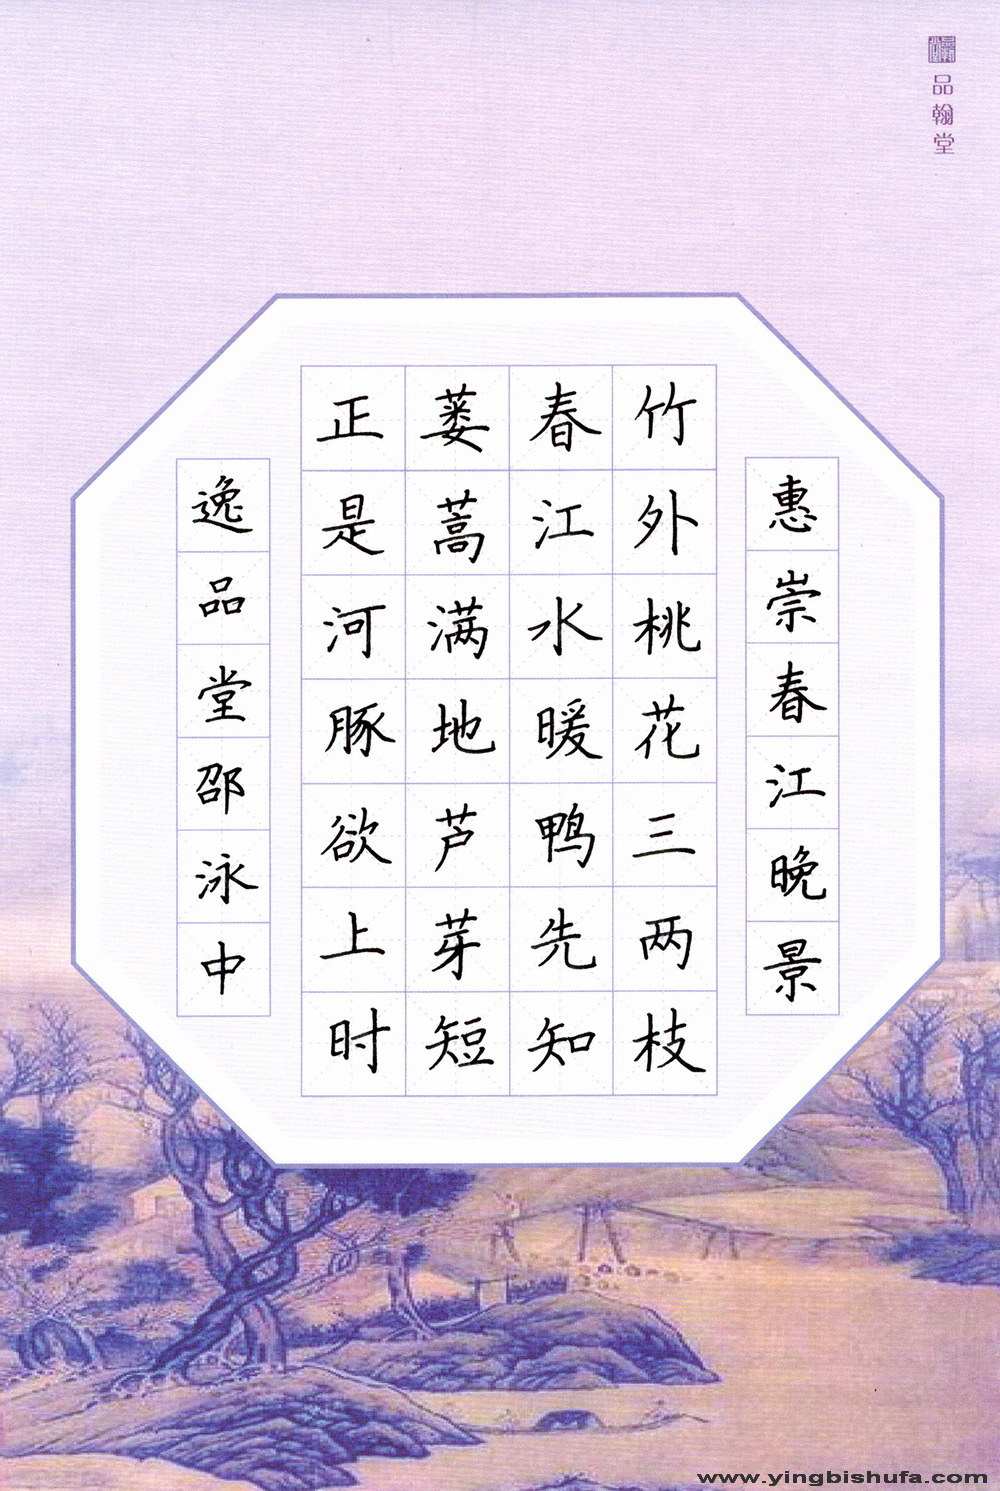 惠崇春江晚景
竹外桃花三两枝
春江水暖鸭先知
蒌蒿满地芦芽短
正是河豚欲上时
逸品堂邵泳中
品翰堂
www.yingbishufa.com